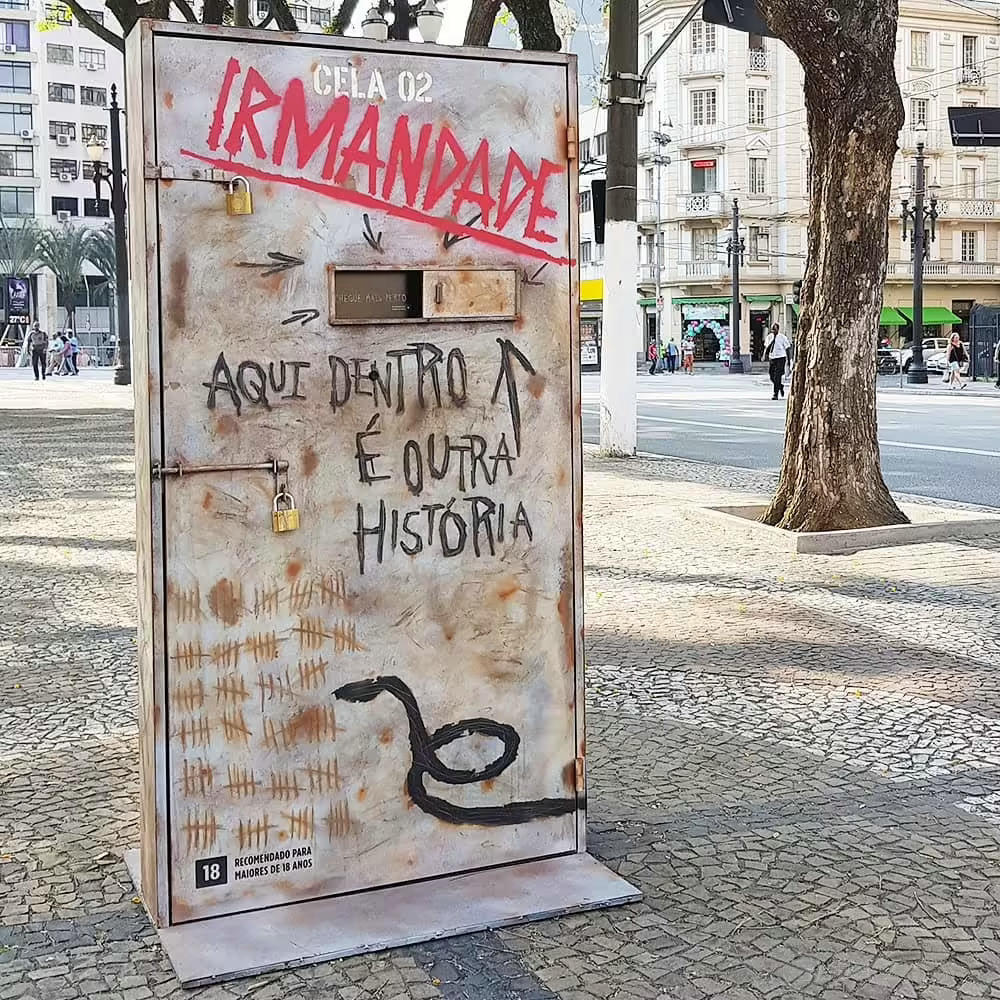 CELA 02
IRMANDADE
CHEGUE MAIS PERTO
AQUI DENTRO
É OUTRA
HISTÓRIA
18 RECOMENDADO PARA
MAIORES DE 18 ANOS
27°C